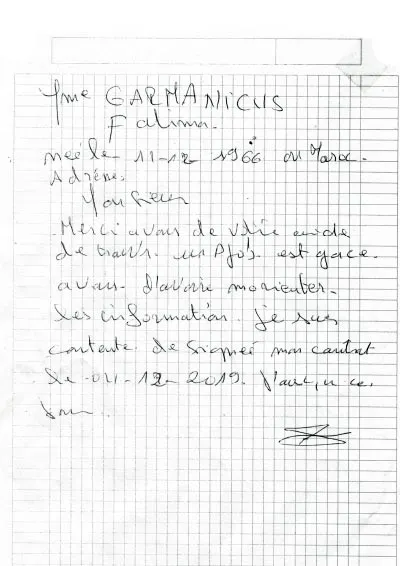 Mme GARMANICUS
Fatima.
neé le 11-12 1966 au Maroc.
Adrène.
Monsieur
Merci avous de votre aide
de trouvr. un est gace.
avous. d'avoire morienter.
les information. Je suis
contente de Signeé mon contrat
le 04-12-2019. ce
Jour.